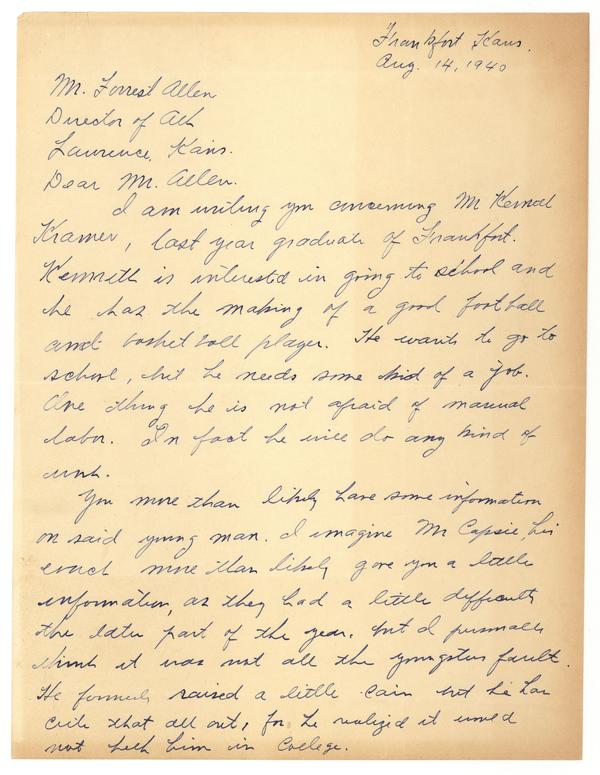 Frankfort Kans.
Aug. 14, 1940
Mr. Forrest Allen
Director of Ath
Lawrence, Kans.
Dear Mr. Allen.
I am writing you concerning Mr
Kramer, last year graduate of Frankfort.
Kenneth is interestd in going to school and
he has the making of a good football
and basket ball player. He wants to go to
school, but he needs some kid of a job.
One thing he is not afraid of manual
labor. In fact he will do any kind of
work.
You more than likely have some information
on said young man. I imagine Mr his
coach more than likely gave you a little
information, as they had a little difficulty
the later part of the year, but I personally
think it was not all the youngsters fault.
He formerly raised a little cain but he has
cute that all out, for he realized it would
not help him in College.